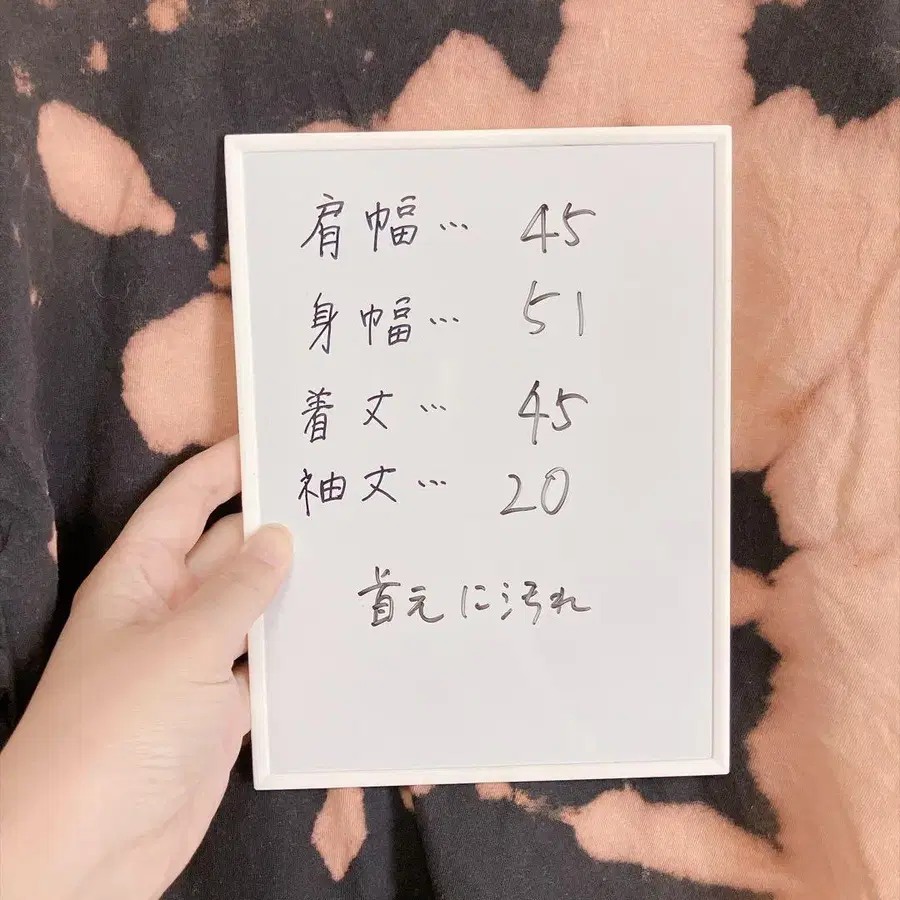 肩幅… 45
身幅… 51
着丈… 45
袖丈… 20
首元に汚れ